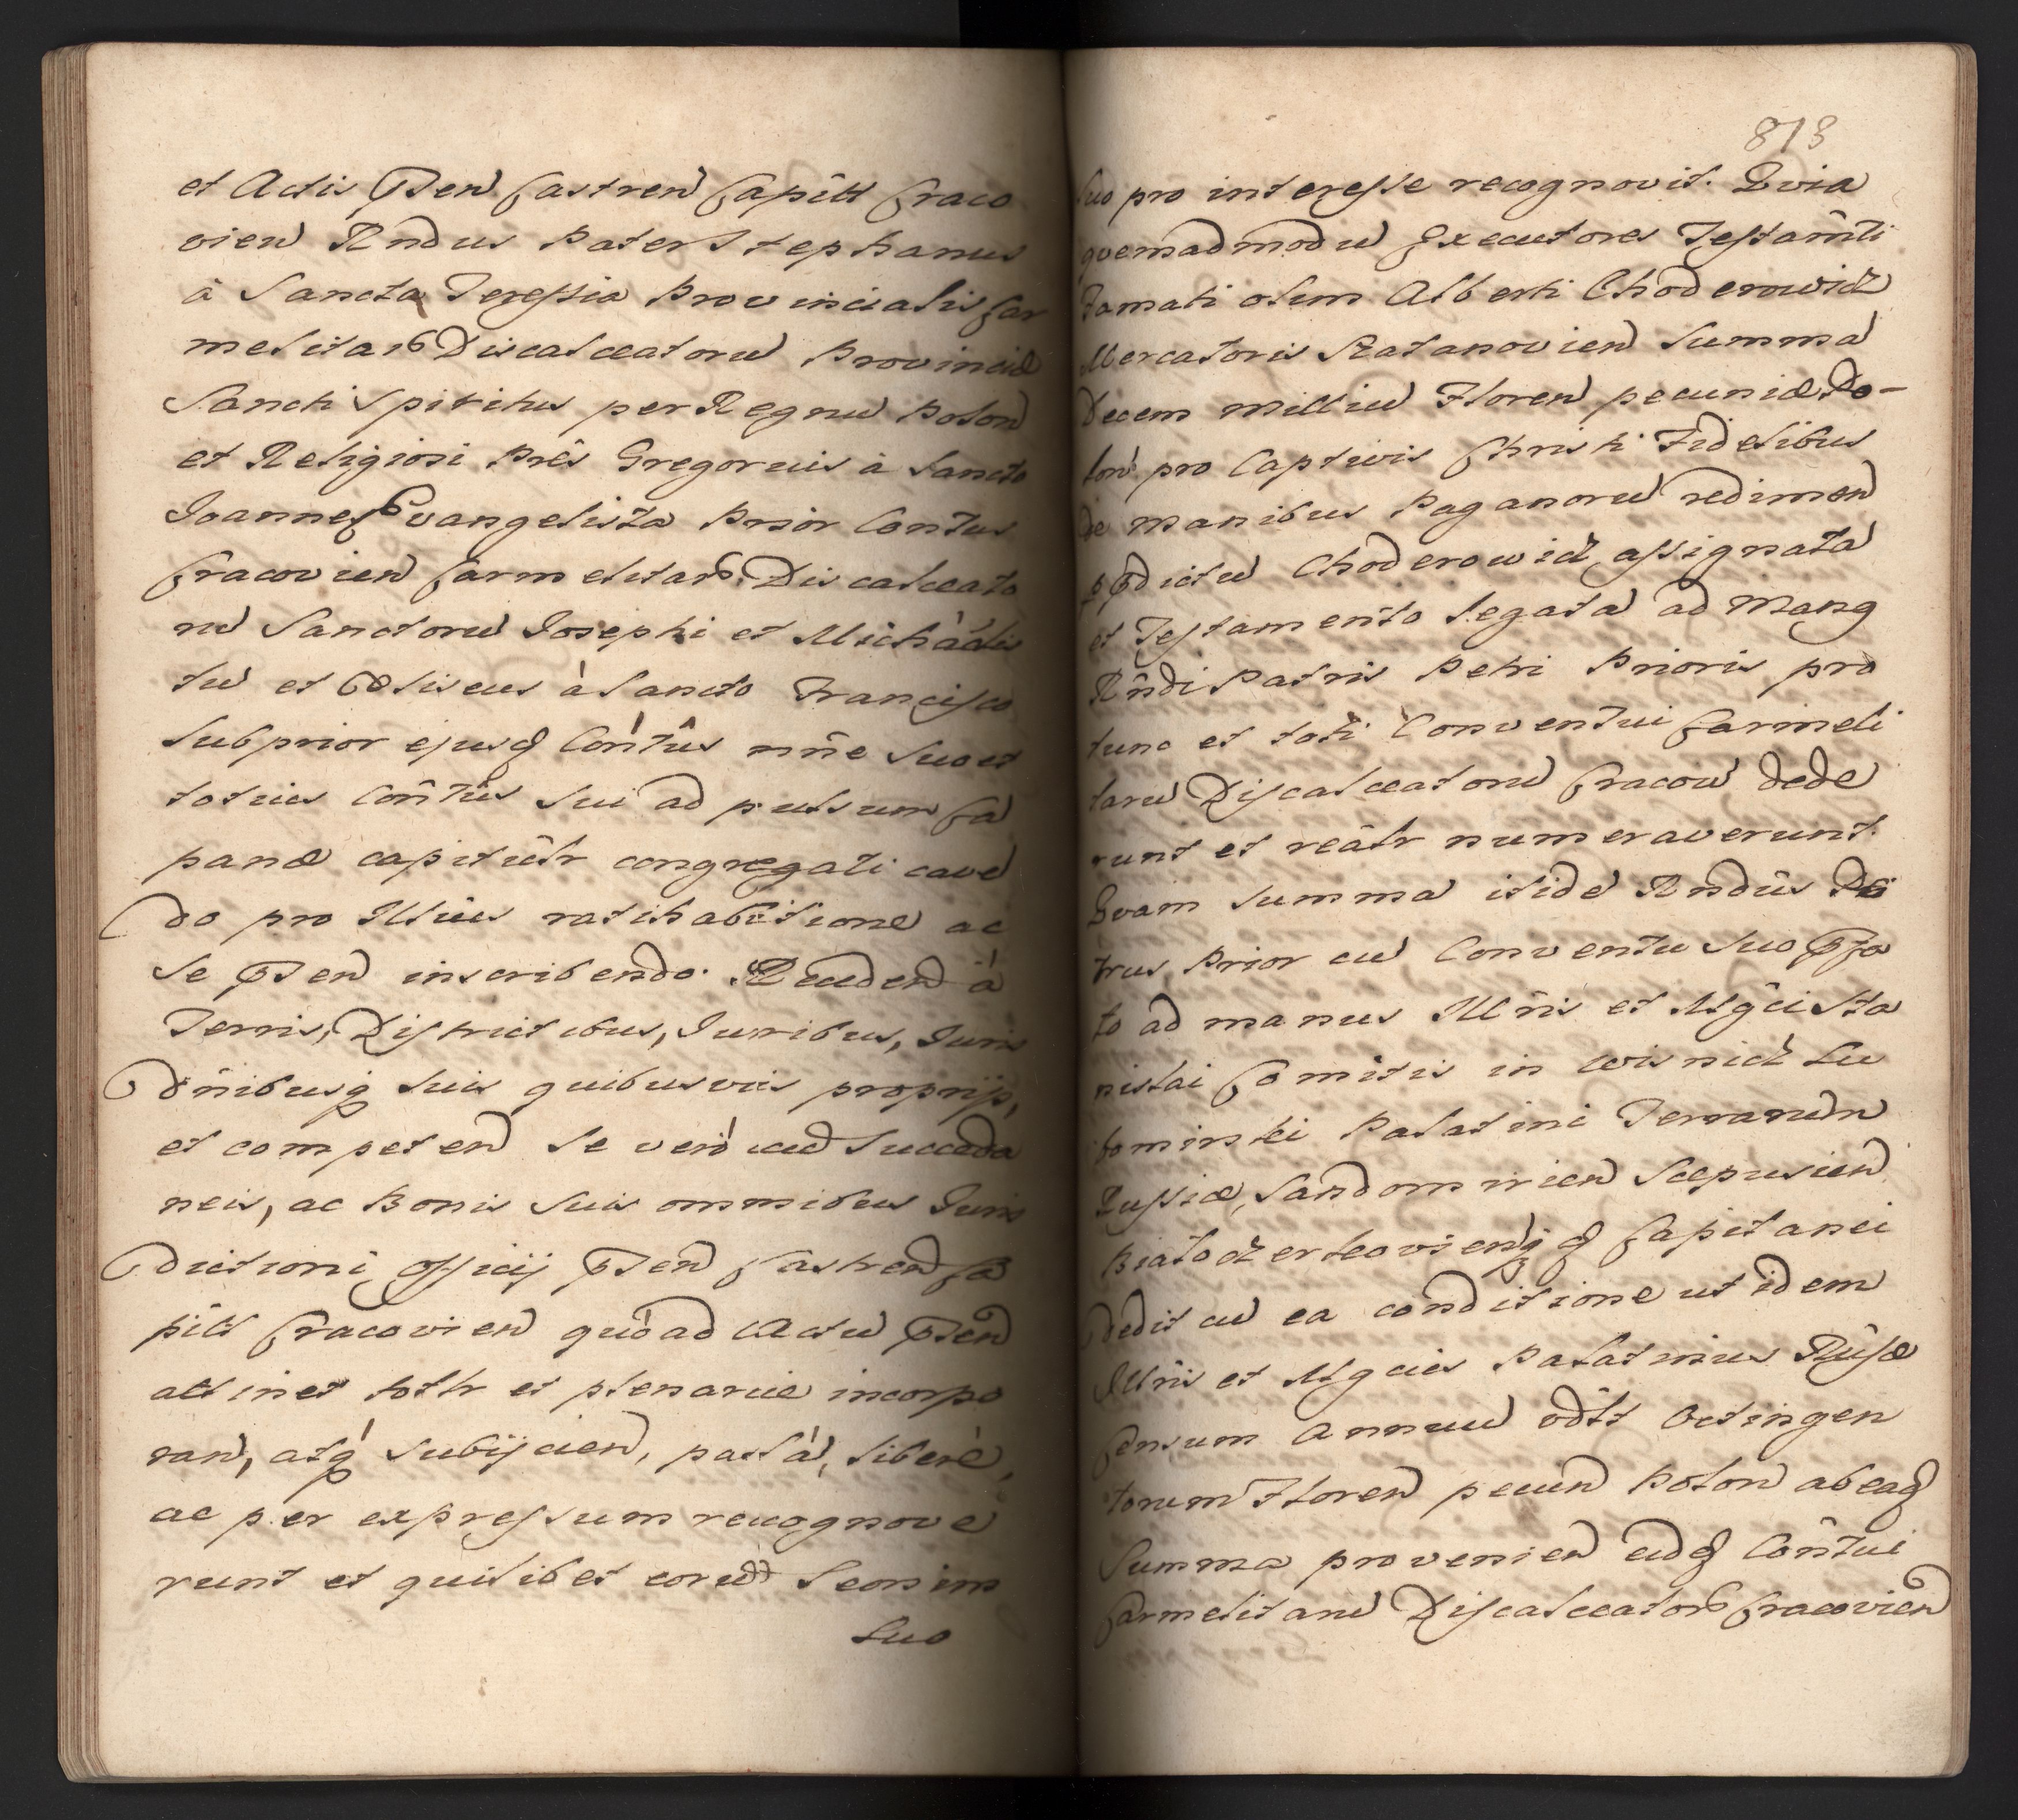 et Actis Pnten Castren Capitł Craco
vien Rndus Pater Stephanus
à Sancta Teressia Provincialis Car
melitar Discalceatoru Provinciæ
Sancti Spiritus per Regnu Polon
et Religiosi Prês Gregorius à Sancto
Joanne Evangelista Prior Contus
Cracovien Carmelitar Discalceato
ru Sanctoru Josephi et Michaelis
tu et Eliseus à Sancto Francisco
Subprior ejusq Contûs nñe Suo et
totius Coñtûs Sui ad pulsum Ca
panæ capitulr congregati cave
do pro Illius ratihabitione ac
Se Pnten inscribendo. Recedend à
Terris, Districtibus, Juribus, Juris
dñibusq suis quibusvis proprijs,
et competen Se verò cu Succeda
neis, ac Bonis Suis omnibus Juris
dictioni Officij Pnten Castren Ca
pitł Cracovien quoad Actu Pnten
attinet totłr et plenarie incorpo
ran, atq Subijcien, palā, liberè,
ac per expressum recognove
runt et quilibet eoru Seorsim
Suo
813
Suo pro interesse recognovit. Qvia
qvemadmodu Executores Testam̃ti
Famati olim Alberti Choderowicz
Mercatoris Satanovien Summā
Decem milliu Floren pecuniæ Po-
lon pro Captivis Christi Fidelibus
de manibus Paganoru redimen
p Pdictu Choderowicz, assignatā
et Testamento legatā ad Mang
Rñdi Patris Petri Prioris pro
tunc et toti Conventui Carmeli
taru Discalceatoru Cracow dede
runt et reałr numeraverunt.
Qvam Summa itidē Rndûs Pe
trus Prior cu Conventu Suo Pfa
to ad manus Illris et Mgci Sta
nislai Comitis in Wisnicz Lu
bomirski Palatini Terrarum
Russiæ, Sandomirien Scepusien
Białocerkovienq Capitanei
dedit cu ea conditione ut idem
Illris et Mgcus Palatinus Russiæ
Censum Annuu vdłt Octingen
torum Floren pecun Polon ab eaq
Summa provenien eidq Coñtui
Carmelitaru Discalceator Cracovien